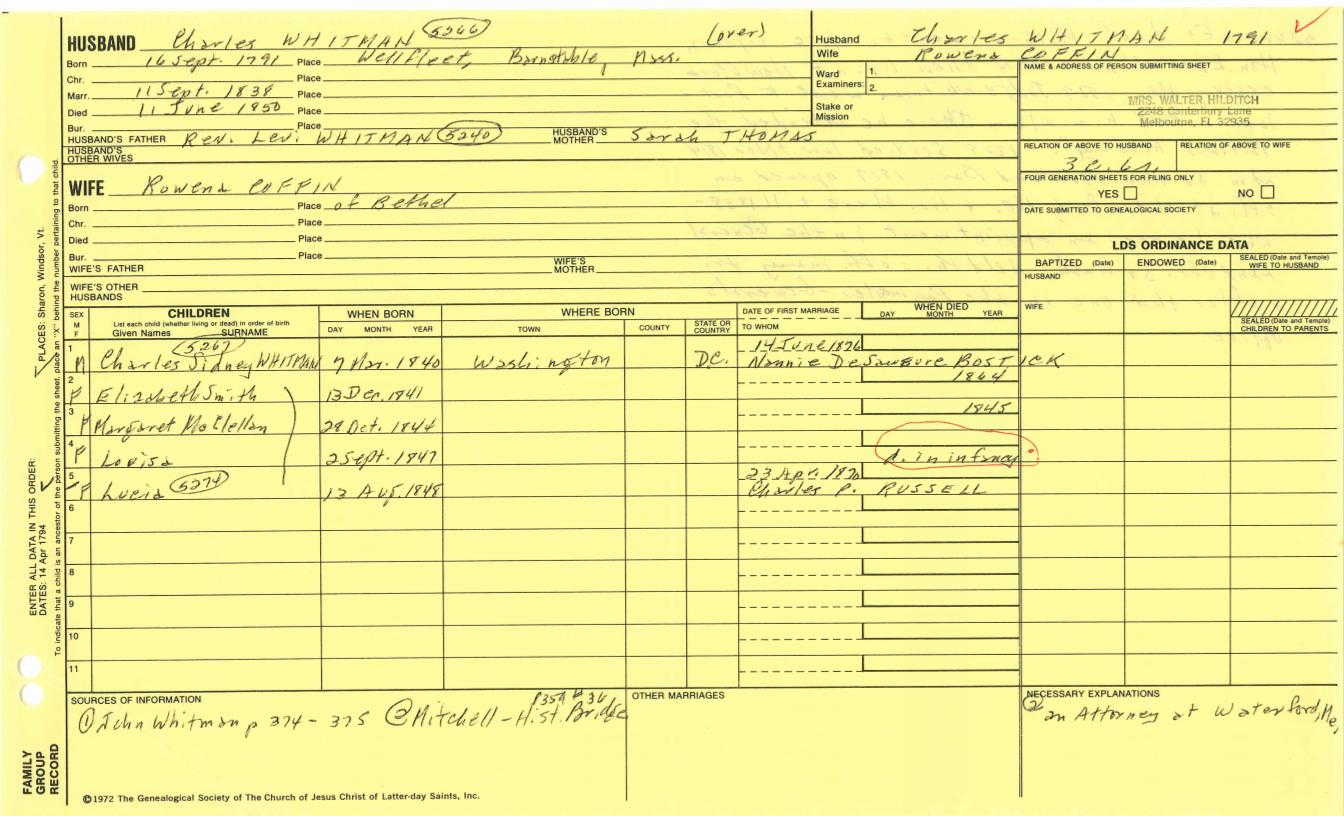 HUSBAND Charles WHITMAN 5266 (over)
Born 16 Sept. 1791 Place Wellfleet, Barnstable, Mass.
Chr. Place
Marr. 11 Sept. 1838 Place
Died 11 June 1850 Place
Bur. Place
HUSBAND'S FATHER Rev. Levi WHITMAN 5240 HUSBAND'S MOTHER Sarah THOMAS
HUSBAND'S OTHER WIVES
WIFE Rowena COFFIN
Born Place of Bethel
Chr. Place
Died Place
Bur. Place
WIFE'S FATHER WIFE'S MOTHER
WIFE'S OTHER HUSBANDS
Husband Charles WHITMAN 1791
Wife Rowena COFFIN
Ward Examiners: 1.
2.
Stake or Mission
NAME & ADDRESS OF PERSON SUBMITTING SHEET
MRS. WALTER HILDITCH
2248 Canterbury Lane
Melbourne, FL 32935
RELATION OF ABOVE TO HUSBAND RELATION OF ABOVE TO WIFE
FOUR GENERATION SHEETS FOR FILING ONLY
YES NO
DATE SUBMITTED TO GENEALOGICAL SOCIETY
LDS ORDINANCE DATA
BAPTIZED (Date) ENDOWED (Date) SEALED (Date and Temple) WIFE TO HUSBAND
HUSBAND
WIFE
SEALED (Date and Temple) CHILDREN TO PARENTS
SEX M F
CHILDREN
List each child (whether living or dead) in order of birth
Given Names SURNAME
WHEN BORN
DAY MONTH YEAR
WHERE BORN
TOWN COUNTY STATE OR COUNTRY
DATE OF FIRST MARRIAGE
TO WHOM
WHEN DIED
DAY MONTH YEAR
1 5267 14 June 1876
M Charles Sidney WHITMAN 7 Mar. 1840 Washington D.C. Nannie DeSaussure BOSTICK
2 1864
F Elizabeth Smith 13 Dec. 1841
3 1845
F Margaret McClellan 28 Oct. 1844
4
F Louisa 2 Sept. 1847 d. in infancy
5 23 Apr. 1870
F Lucia 5274 12 Aug. 1848 Charles P. RUSSELL
6
7
8
9
10
11
SOURCES OF INFORMATION
① John Whitman p 374-375 ② Mitchell - Hist. Bridge
OTHER MARRIAGES
NECESSARY EXPLANATIONS
② an Attorney at Waterford, Me,
ENTER ALL DATA IN THIS ORDER:
DATES: 14 Apr 1794 PLACES: Sharon, Windsor, Vt.
To indicate that a child is an ancestor of the person submitting the sheet, place an "X" behind the number pertaining to that child.
FAMILY
GROUP
RECORD
©1972 The Genealogical Society of The Church of Jesus Christ of Latter-day Saints, Inc.